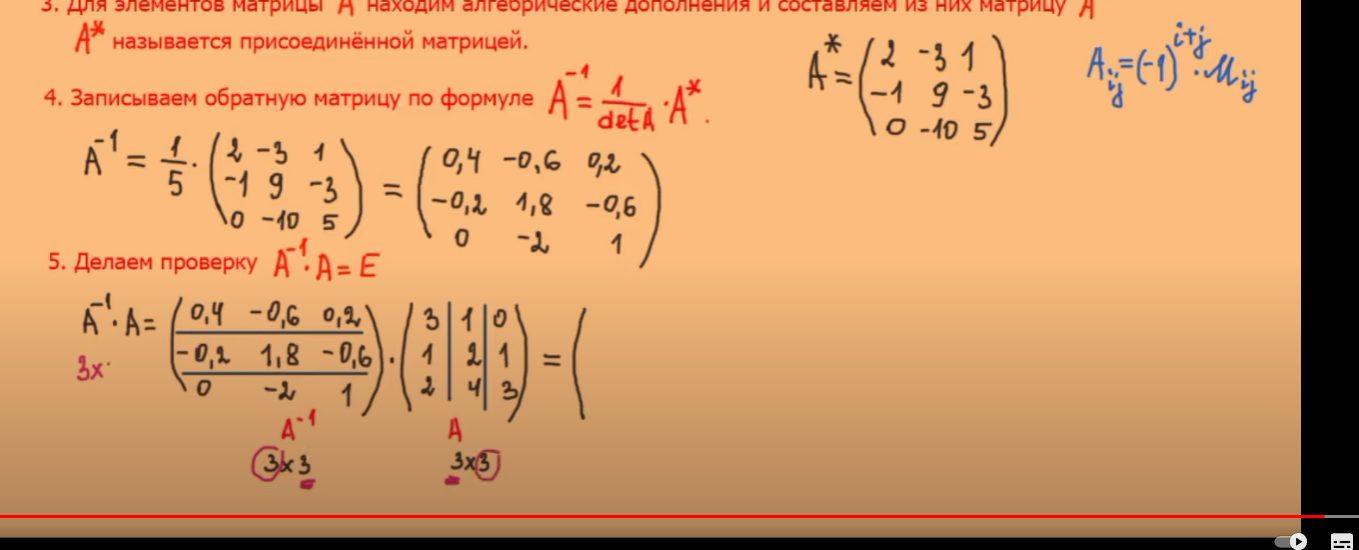 3. Для элементов матрицы A находим алгебрические дополнения и составляем из них матрицу A
A* называется присоединённой матрицей.
A* = (2 -3 1
-1 9 -3
0 -10 5)
A_ij = (-1)^(i+j) · M_ij
4. Записываем обратную матрицу по формуле A^-1 = 1/detA · A*.
A^-1 = 1/5 · (2 -3 1
-1 9 -3
0 -10 5) = (0,4 -0,6 0,2
-0,2 1,8 -0,6
0 -2 1)
5. Делаем проверку A^-1 · A = E
A^-1 · A = (0,4 -0,6 0,2
-0,2 1,8 -0,6
0 -2 1) · (3 | 1 | 0
1 | 2 | 1
2 | 4 | 3) = (
3x
A^-1 A
3x3 3x3